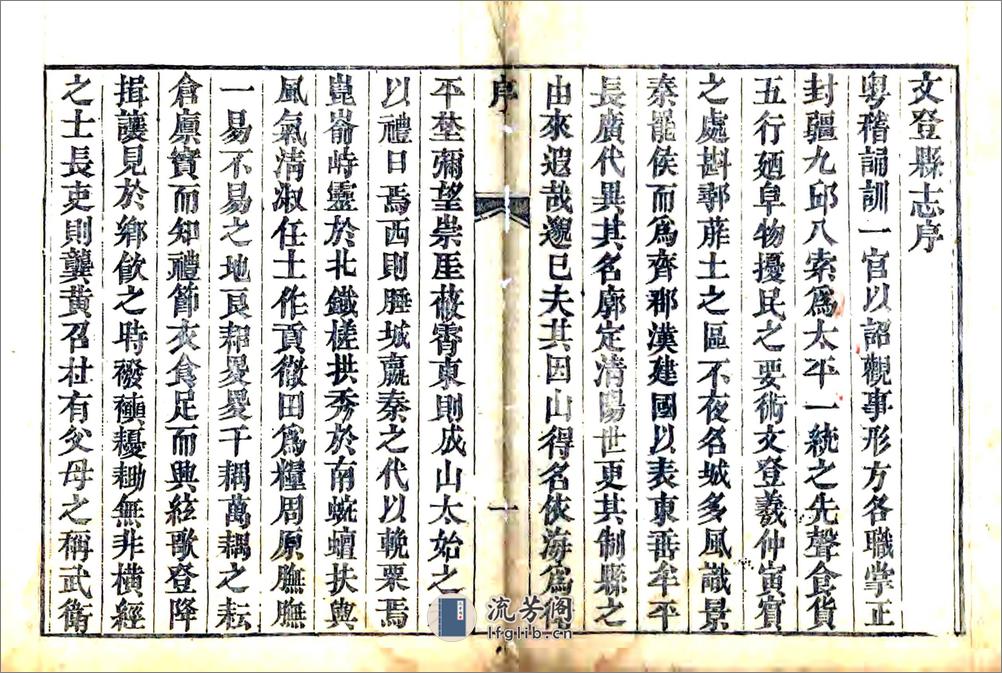 文登縣志序
粵稽誦訓一官以詔觀事形方各職掌正
封疆九邱八索為太平一統之先聲食貨
五行廼阜物擾民之要術文登羲仲寅賓
之處斟鄩蓱土之區不夜名城多風識景
秦罷侯而為齊郡漢建國以表東善牟平
長廣代異其名廓定清陽世更其制縣之
由來遐哉邈已夫其因山得名依海為
序
一
平埜彌望崇厓蔽霄東則成山太始之
以禮日焉西則腄城嬴秦之代以輓粟焉
崑崙峙靈於北鐵槎拱秀於南蜿蟺扶輿
風氣清淑任土作貢徹田為糧周原膴膴
一易不易之地良耜畟畟千耦萬耦之耘
倉廪實而知禮節衣食足而興絃歌登降
揖讓見於鄉飲之時耰鋤無非橫經
之士長吏則龔黃召杜有父母之稱武衛
流芳阁
lfglib.cn